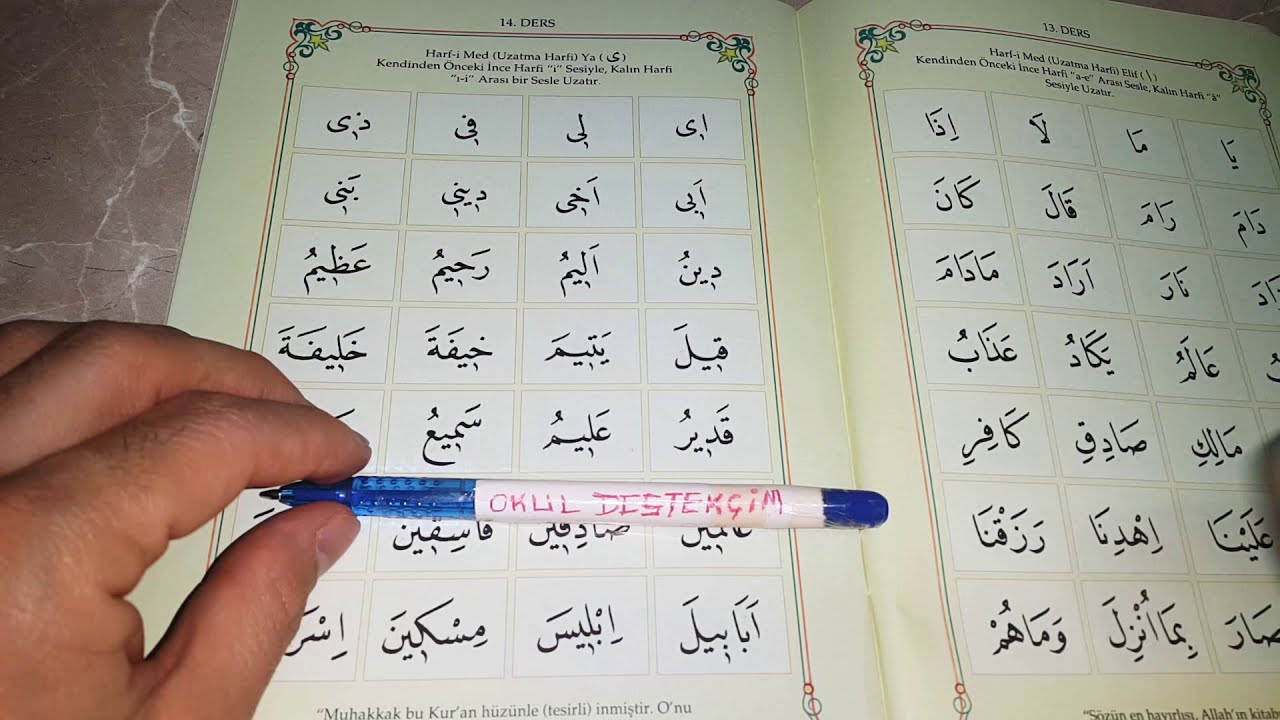 14. DERS
Harf-i Med (Uzatma Harfi) Ya (ى)
Kendinden Önceki İnce Harfi "i" Sesiyle, Kalın Harfi
"ı-i" Arası bir Sesle Uzatır.
اٖى لٖى فٖى ذٖى
اَبٖى اَخٖى دٖينٖى بَنٖى
دٖينُ اَلٖيمُ رَحٖيمُ عَظٖيمُ
قٖيلَ يَتٖيمَ خٖيفَةَ خَلٖيفَةَ
قَدٖيرُ عَلٖيمُ سَمٖيعُ
OKUL DESTEKÇİM
عَالَمٖينَ صَادِقٖينَ فَاسِقٖينَ
اَبَابٖيلَ اِبْلٖيسَ مِسْكٖينَ
"Muhakkak bu Kur'an hüzünle (tesirli) inmiştir. O'nu
13. DERS
Harf-i Med (Uzatma Harfi) Elif ( ا )
Kendinden Önceki İnce Harfi "a-e" Arası Sesle, Kalın Harfi "â"
Sesiyle Uzatır.
يَا مَا لَا اِذَا
دَامَ رَامَ قَالَ كَانَ
نَارَ اَرَادَ مَادَامَ
عَالَمُ يَكَادُ عَذَابُ
مَالِكِ صَادِقِ كَافِرِ
عَلَيْنَا اِهْدِنَا رَزَقْنَا
صَارَ بِمَا اُنْزِلَ وَمَاهُمْ
"Sözün en hayırlısı, Allah'ın kitab